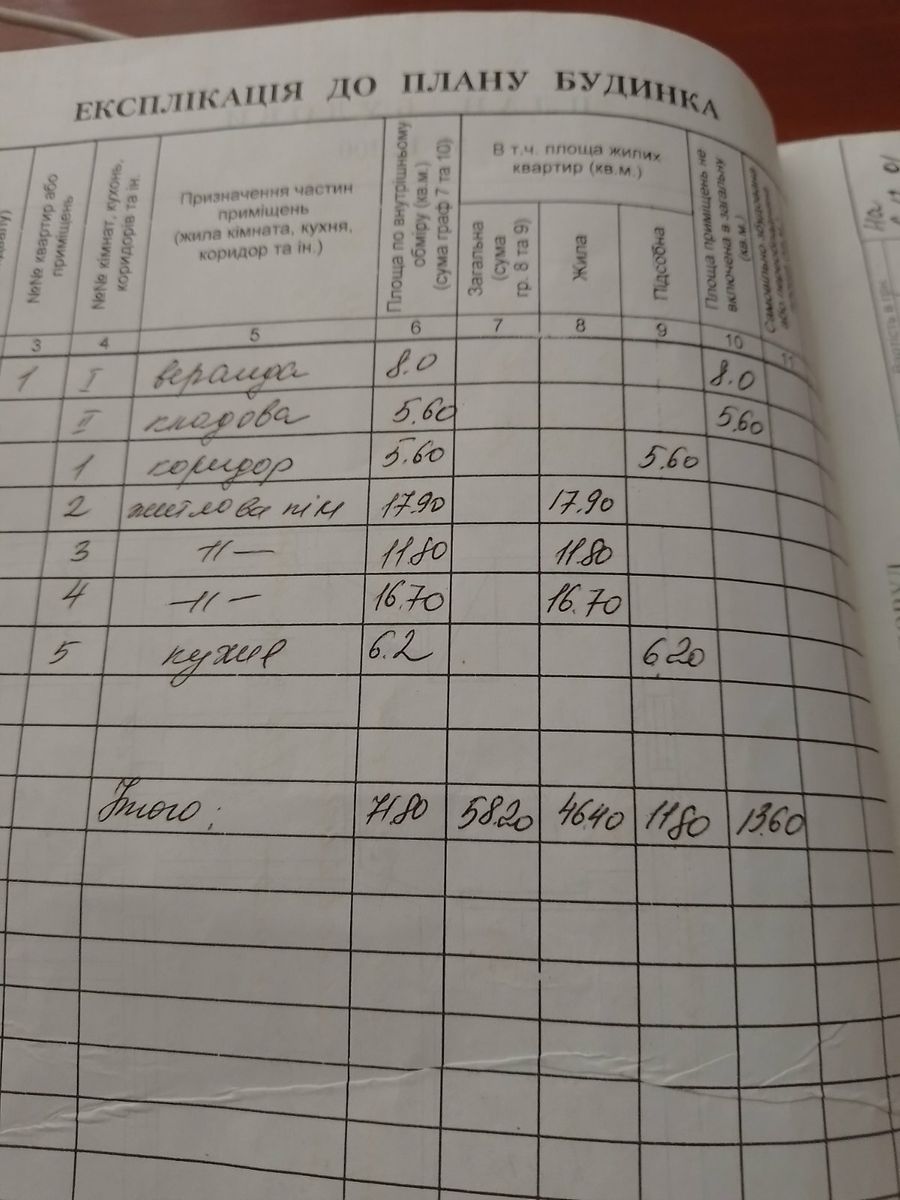 ЕКСПЛІКАЦІЯ ДО ПЛАНУ БУДИНКА
№№ квартир або приміщень
№№ кімнат, кухонь, коридорів та ін.
Призначення частин приміщень (жила кімната, кухня, коридор та ін.)
Площа по внутрішньому обміру (кв.м.) (сума граф 7 та 10)
В т.ч. площа жилих квартир (кв.м.)
Загальна (сума гр. 8 та 9)
Жила
Підсобна
Площа приміщень не включена в загальну (кв.м.)
Самовільно збудована або переобладнана
3 4 5 6 7 8 9 10 11
1 I веранда 8.0 8.0
II кладова 5.60 5.60
1 коридор 5.60 5.60
2 житлова кім 17.90 17.90
3 -//- 11.80 11.80
4 -//- 16.70 16.70
5 кухня 6.2 6 20
Итого: 71.80 58.20 46.40 11.80 13.60
На